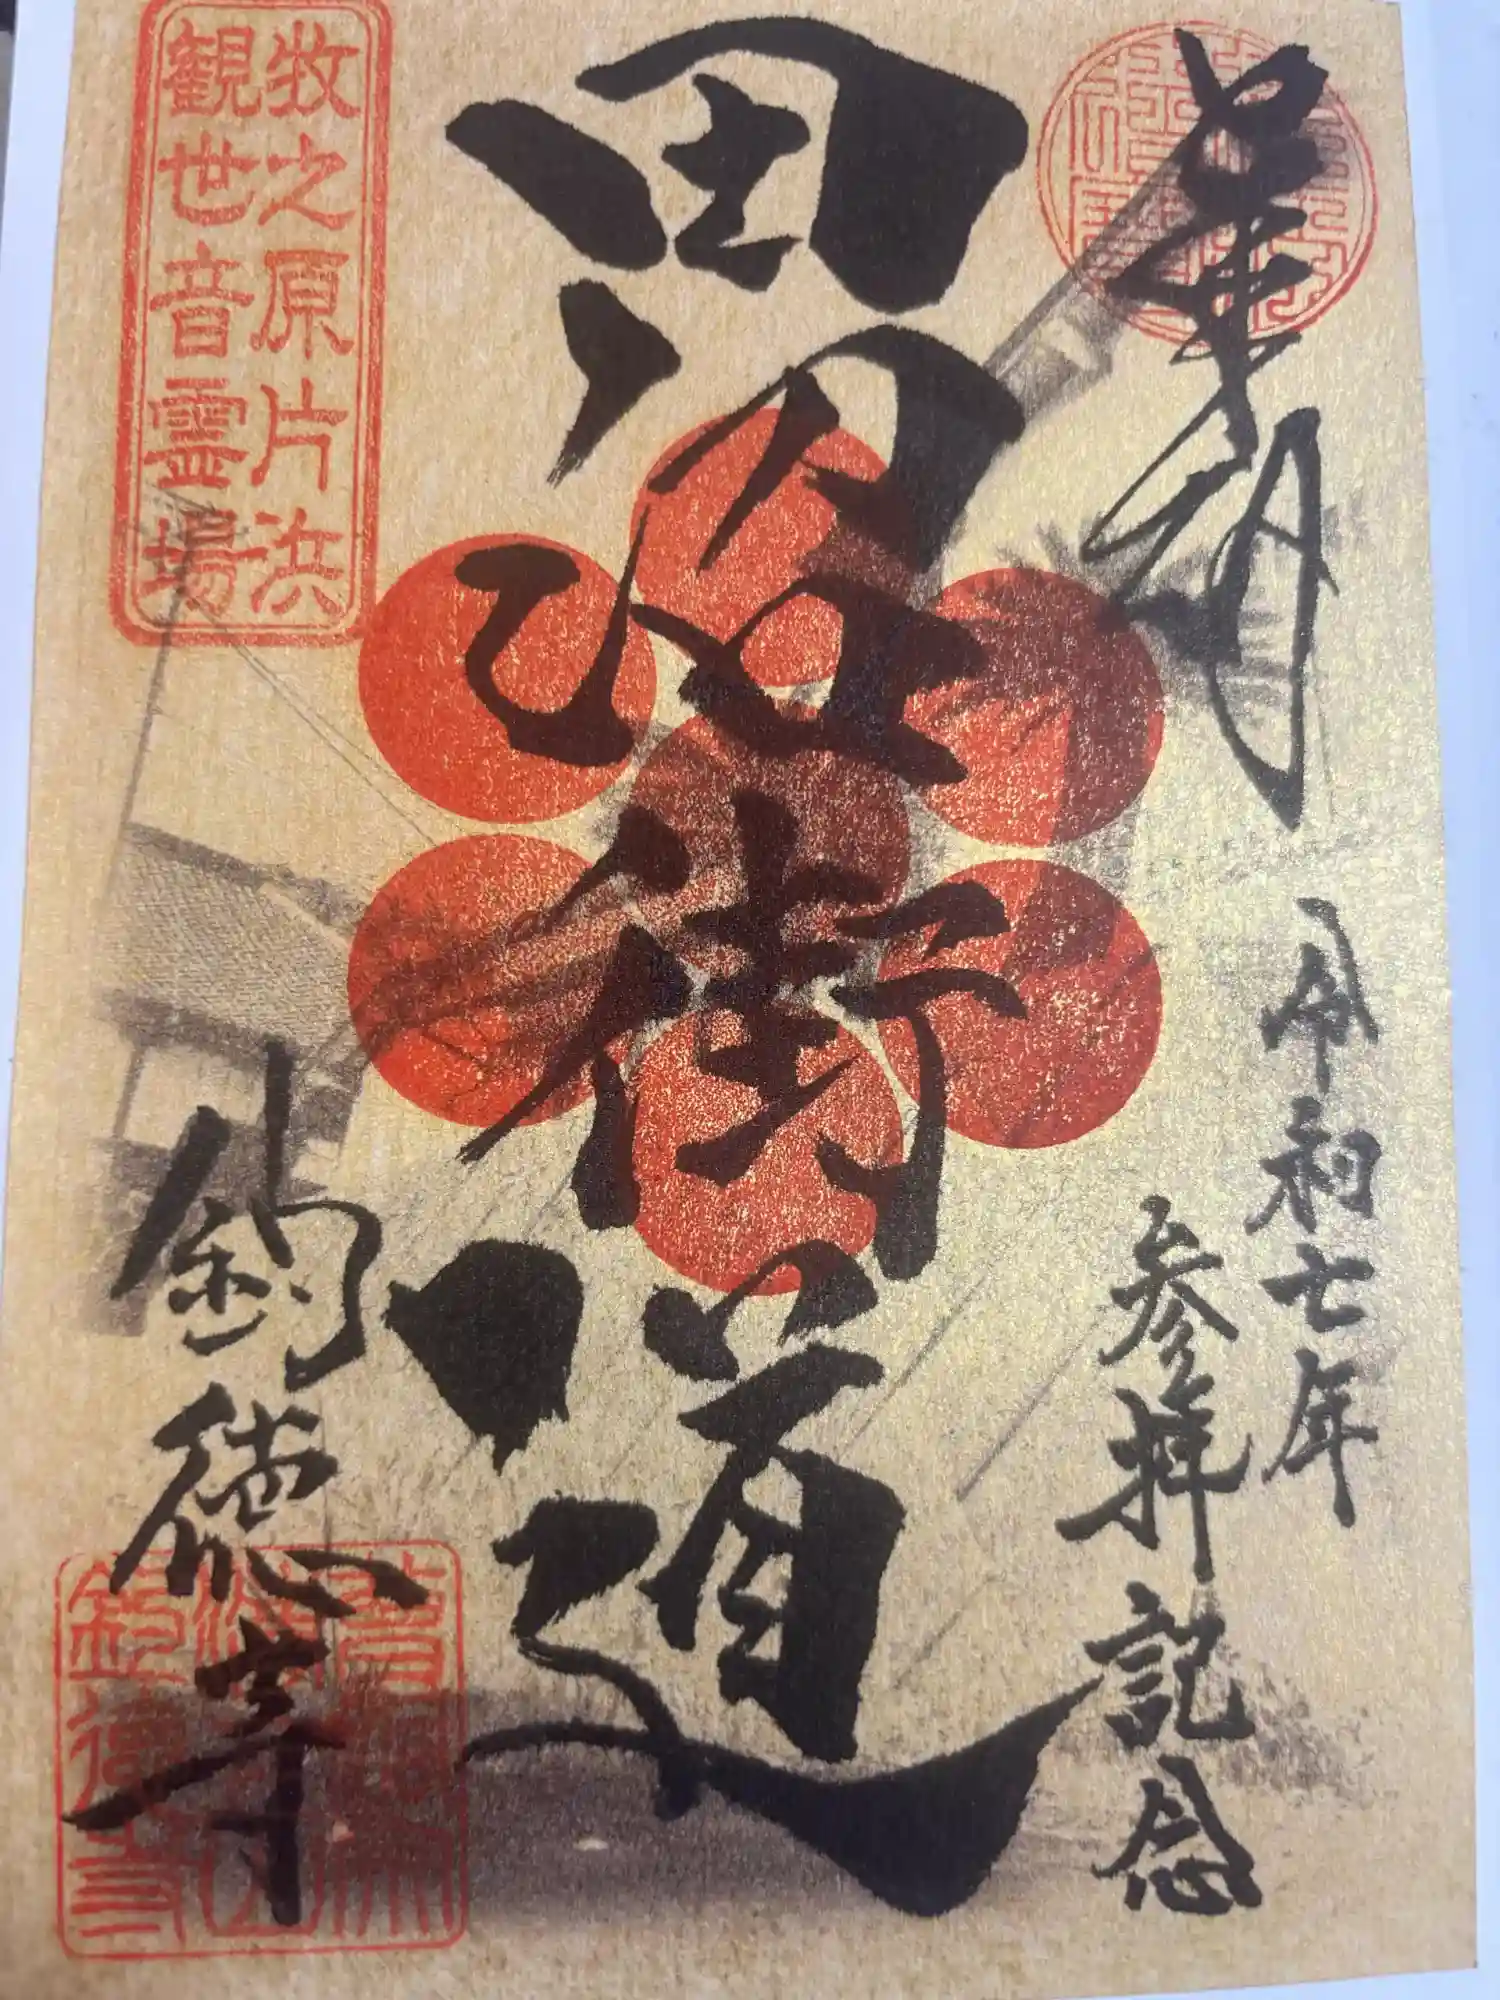 令和七年
参拝記念
田沼街道
牧之原片浜
観世音霊場
釣徳寺